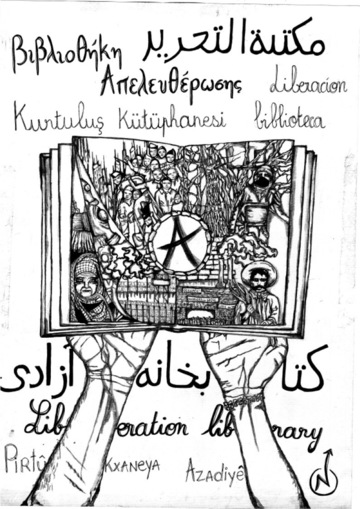 Βιβλιοθήκη مكتبة التحرير
Απελευθέρωσης Liberacion
Kurtuluş Kütüphanesi biblioteca
A
کتابخانه آزادی
Liberation library
Pirtûkxaneya Azadiyê